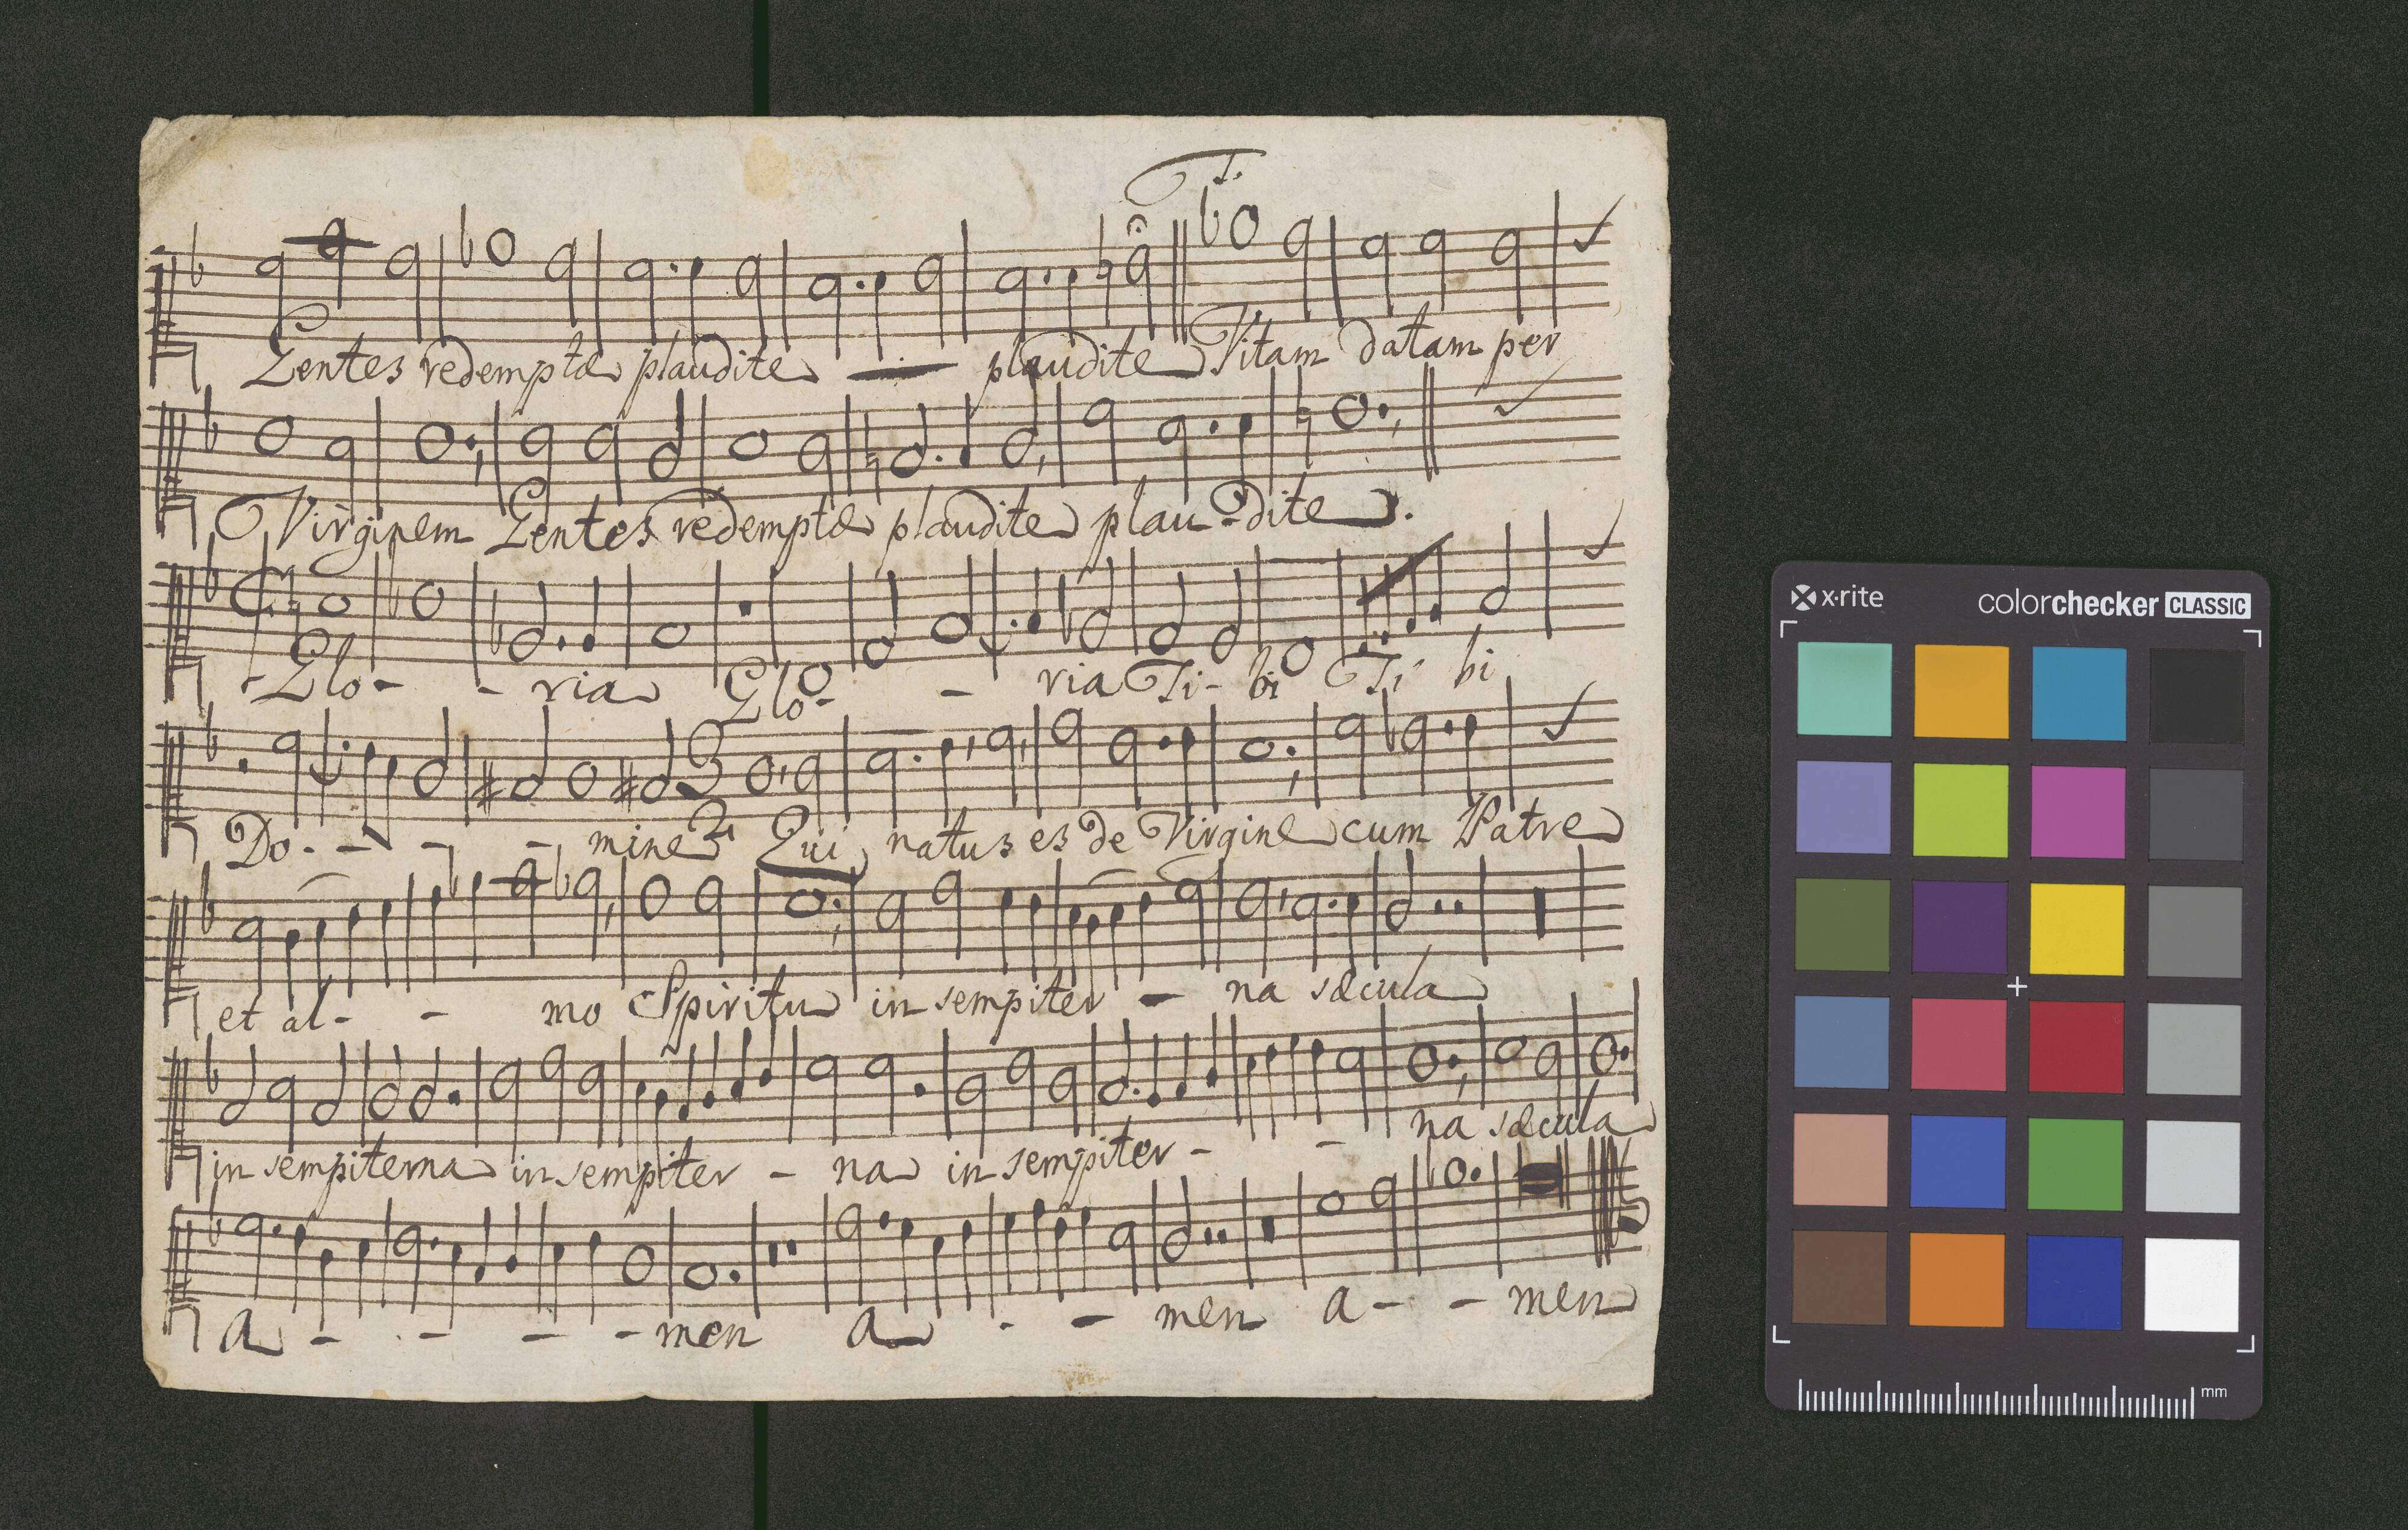 T.
Gentes redemptæ plaudite — plaudite Vitam datam per
Virginem Gentes redemptæ plaudite plau-dite.
-Glo- - ria Glo- - ria Ti- bi Ti bi
Do- - - - mine 3 Qui natus es de Virgine cum Patre
et al- - mo Spiritu in sempiter - na sæcula
in sempiterna in sempiter - na in sempiter- - na sæcula
A - - - -men A - - men A- - men
x-rite colorchecker CLASSIC
mm